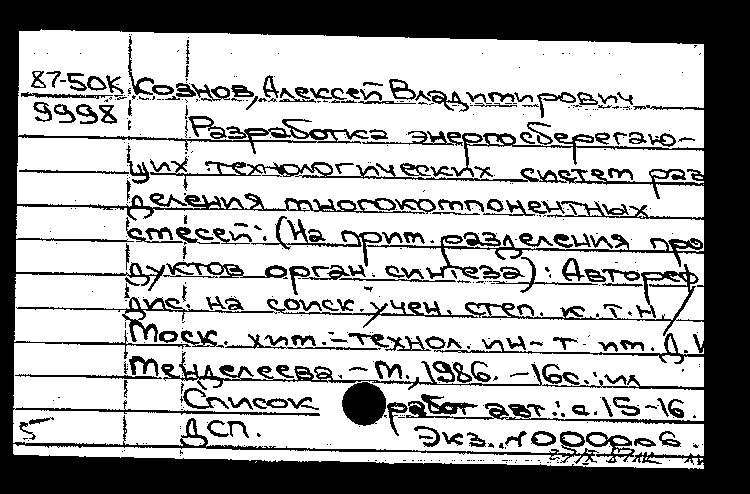 87-50К Кознов, Алексей Владимирович
9998
Разработка энергосберегаю-
щих технологических систем раз
деления многокомпонентных
смесей: (На прим. разделения про
дуктов орган. синтеза): Автореф
дис. на соиск. учен. степ. к.т.н. /
Моск. хим.-технол. ин-т им. Д.И
Менделеева. - М., 1986. - 16с.: ил
Список работ авт.: с. 15-16.
5 ДСП. Экз. N 000006.